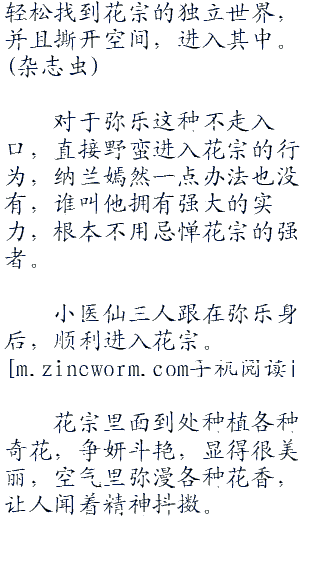 轻松找到花宗的独立世界，
并且撕开空间，进入其中。
(杂志虫)
对于弥乐这种不走入
口，直接野蛮进入花宗的行
为，纳兰嫣然一点办法也没
有，谁叫他拥有强大的实
力，根本不用忌惮花宗的强
者。
小医仙三人跟在弥乐身
后，顺利进入花宗。
[m.zincworm.com手机阅读]
花宗里面到处种植各种
奇花，争妍斗艳，显得很美
丽，空气里弥漫各种花香，
让人闻着精神抖擞。